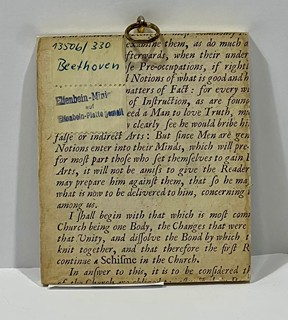 13506/330
Beethoven
Elfenbein-Minia
auf
Elfenbein-Platte gemalt
examine them, as do much a
fterwards, when their under
se Pre-occupations, if righti
l Notions of what is good and h
matters of Fact: for every w
of Instruction, as are foun
need a Man to love Truth, m
clearly see he would bribe hi
false or indirect Arts: But since Men are gen
Notions enter into their Minds, which will pre-
for most part those who set themselves to gain
Arts, it will not be amiss to give the Reader
may prepare him against them, that so he ma
what is now to be delivered to him, concerning
among us.
I shall begin with that which is most com
Church being one Body, the Changes that were
that Unity, and dissolve the Bond by which
knit together, and that therefore the first R
continue a Schisme in the Church.
In answer to this, it is to be considered th